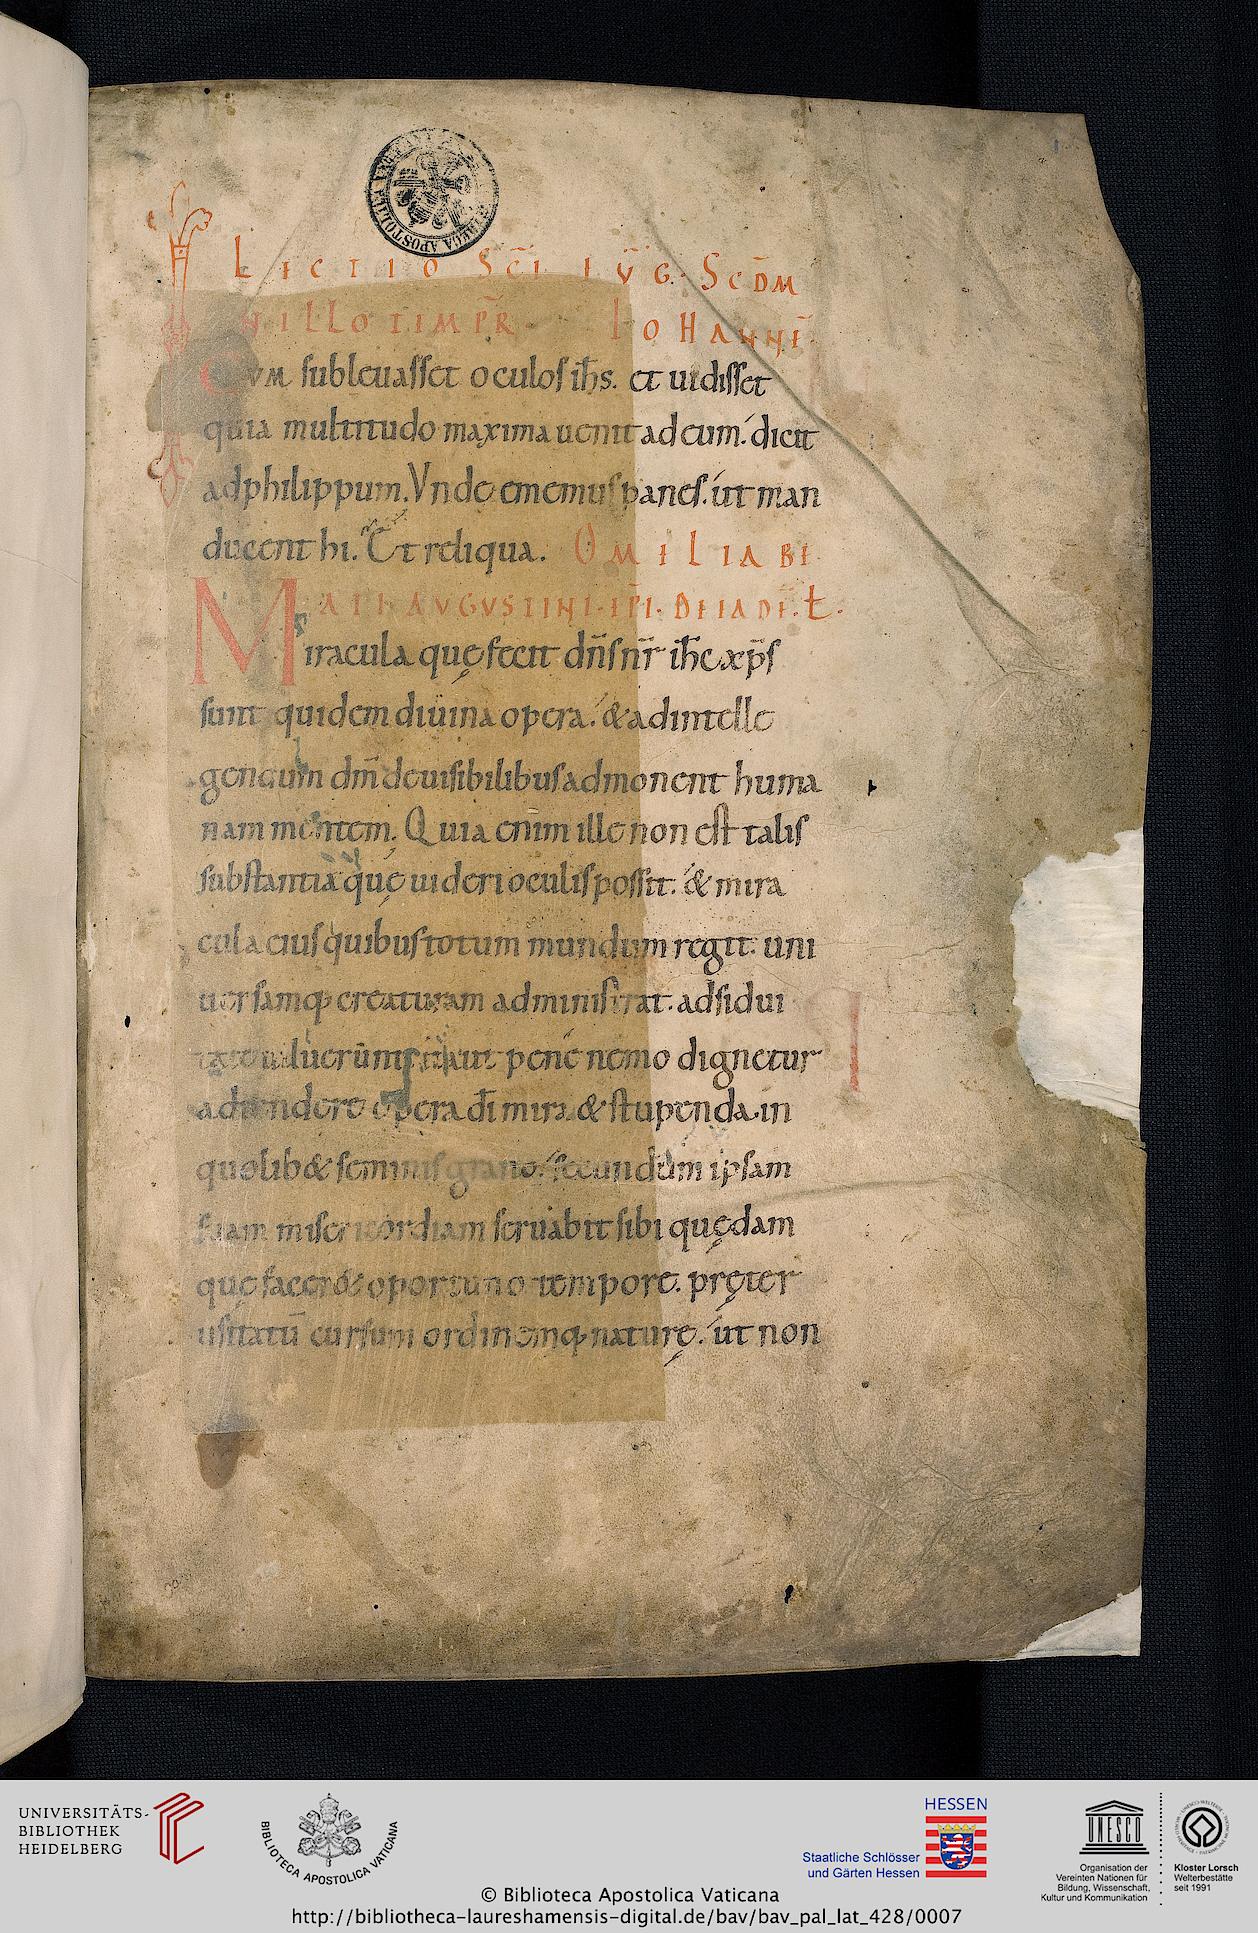 LECTIO SC̄I EṼG. SCD̄M
IN ILLO TEMPR̄ IOHANNĒ.
CVM subleuasset oculos ih̄s. et uidisset
quia multitudo maxima uenit ad eum. dicit
ad philippum. Vnde ememus panes. ut man
ducent hi. Et reliqua. OMILIA BE
ATI AVGUSTINI. EP̄I. DE IADE. Ł.
Miracula quę fecit dn̄s nr̄ ih̄c xp̄s
sunt quidem diuina opera. & ad intelle
gendum dm̄ de uisibilibus admonent huma
nam mentem. Quia enim ille non est talis
substantia quę uideri oculis possit. & mira
cula eius quibus totum mundum regit. uni
uersamq; creaturam administrat. adsidui
tate uiluerunt ita ut pene nemo dignetur
adtendere opera dī mira & stupenda. in
quolib& seminis grano. secundum ipsam
suam misericordiam seruabit sibi quędam
quę facer& oportuno tempore. pręter
usitatū cursum ordinemq; naturę. ut non
UNIVERSITÄTS-
BIBLIOTHEK
HEIDELBERG
BIBLIOTECA APOSTOLICA VATICANA
HESSEN
Staatliche Schlösser
und Gärten Hessen
UNESCO
Organisation der
Vereinten Nationen für
Bildung, Wissenschaft,
Kultur und Kommunikation
Kloster Lorsch
Welterbestätte
seit 1991
© Biblioteca Apostolica Vaticana
http://bibliotheca-laureshamensis-digital.de/bav/bav_pal_lat_428/0007